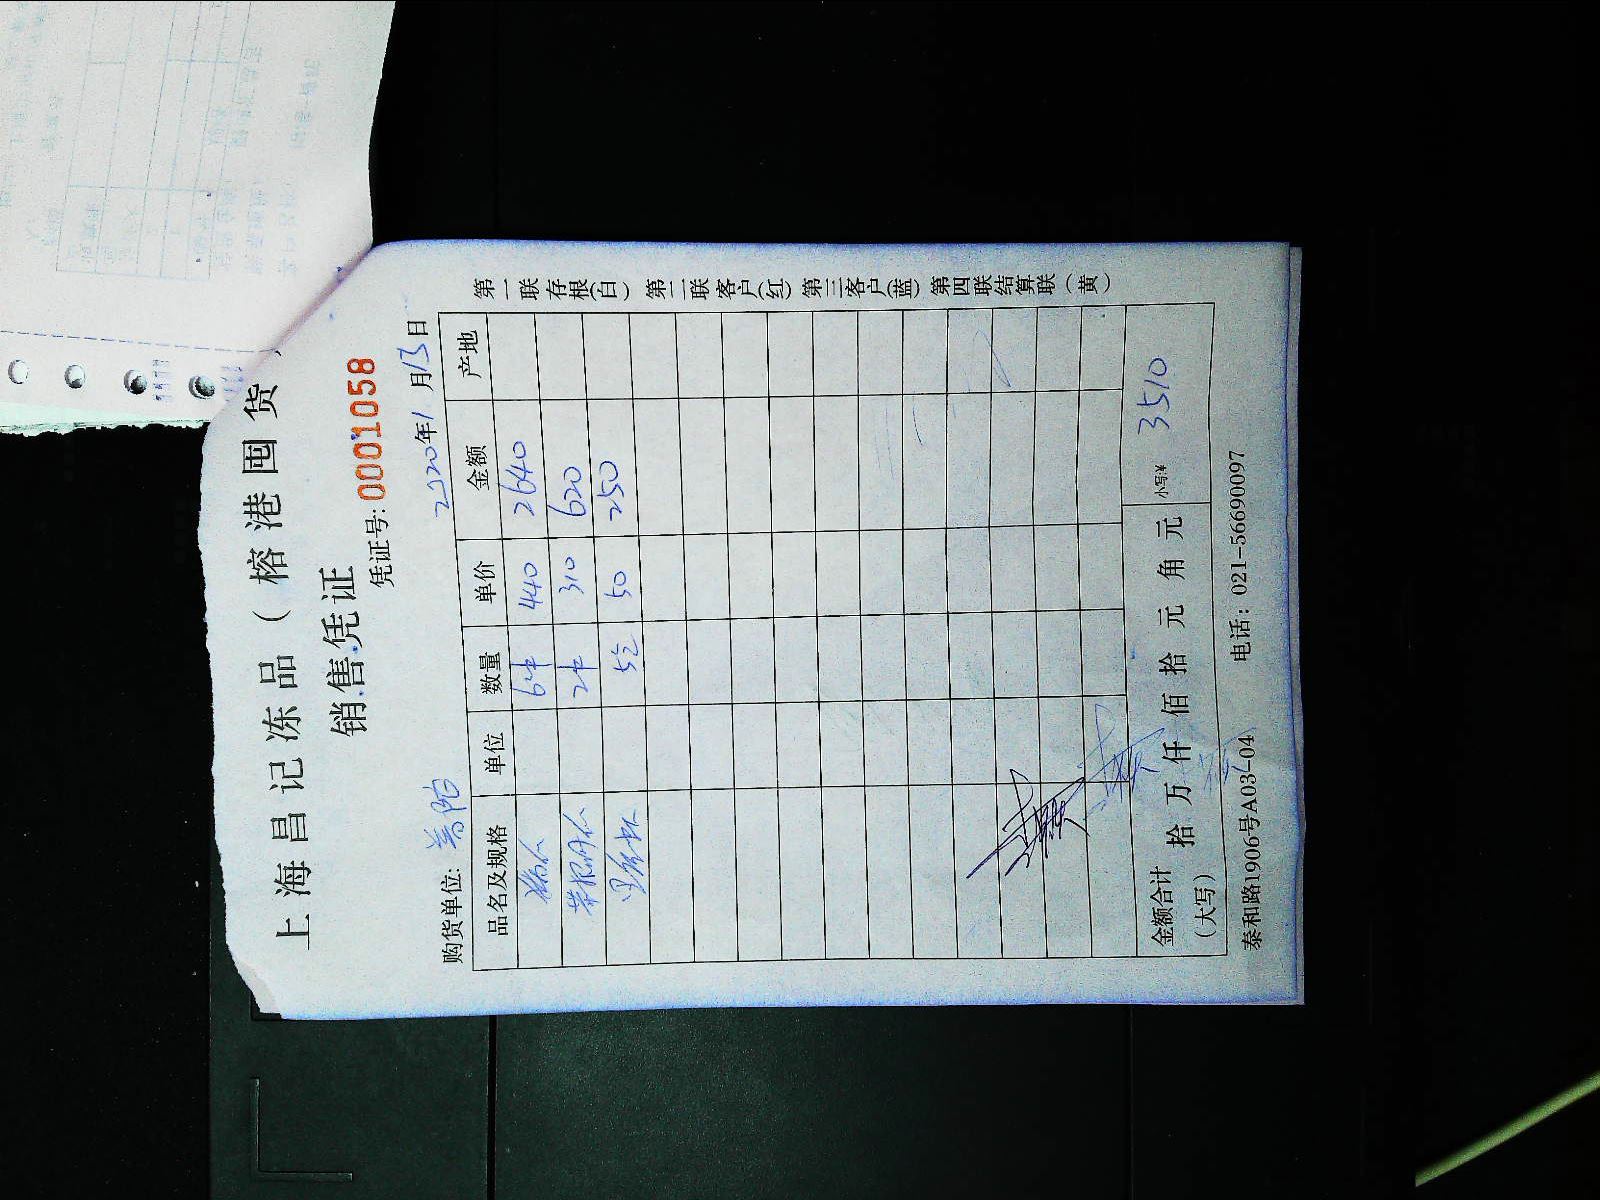 上海昌记冻品（榕港囤货
销售凭证
凭证号: 0001058
购货单位: 普陀 2020年1月13日
品名及规格 单位 数量 单价 金额 产地
6件 440 2640
2件 310 620
5包 50 250
金额合计（大写） 拾 万 仟 佰 拾 元 角 元 小写:¥ 3510
泰和路1906号A03-04 电话：021-56690097
第一联存根(白) 第二联客户(红) 第三客户(蓝) 第四联结算联（黄）